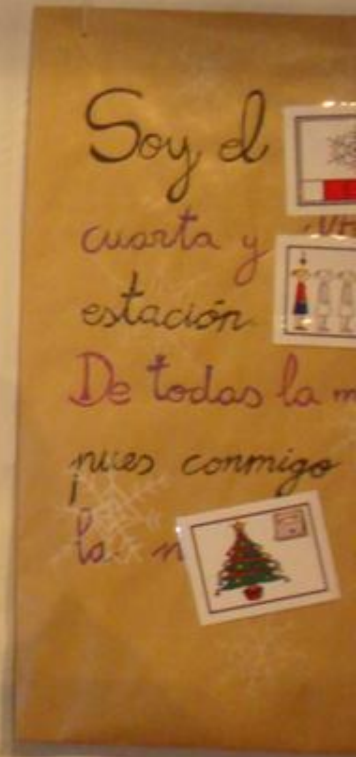 Soy el
cuarta y
estación.
De todas la
pues conmigo
la